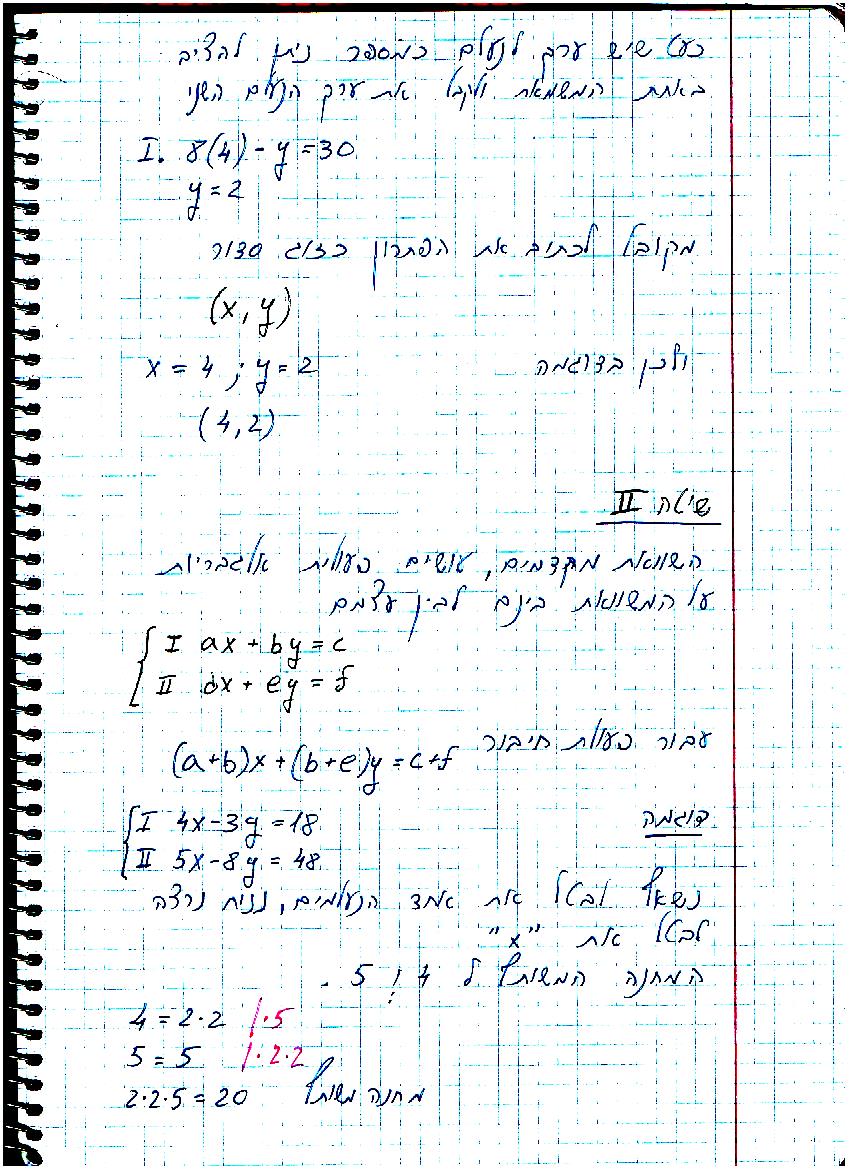 כעט שיש ערך לנעלם כמספר ניתן להציב
באחת המשמאת ולקבל את ערך הנעלם השני
I. 8(4) - y = 30
y = 2
מקובל לכתוב את הפתרון כזוג סדור
(x, y)
ולכן בדוגמה
x = 4 ; y = 2
(4, 2)
שיטה II
השוואת מקדמים, עושים פעולות אלגבריות
על המשוואת בינם לבין עצמם
I ax + by = c
II dx + ey = f
עבור פעולת חיבור
(a+b)x + (b+e)y = c+f
דוגמה
I 4x - 3y = 18
II 5x - 8y = 48
נשאף לבטל את אחד הנעלמים, נניח נרצה
לבטל את "x"
המחנה המשותף ל 4 ו 5.
4 = 2·2 /·5
5 = 5 /·2·2
2·2·5 = 20 מחנה משותף